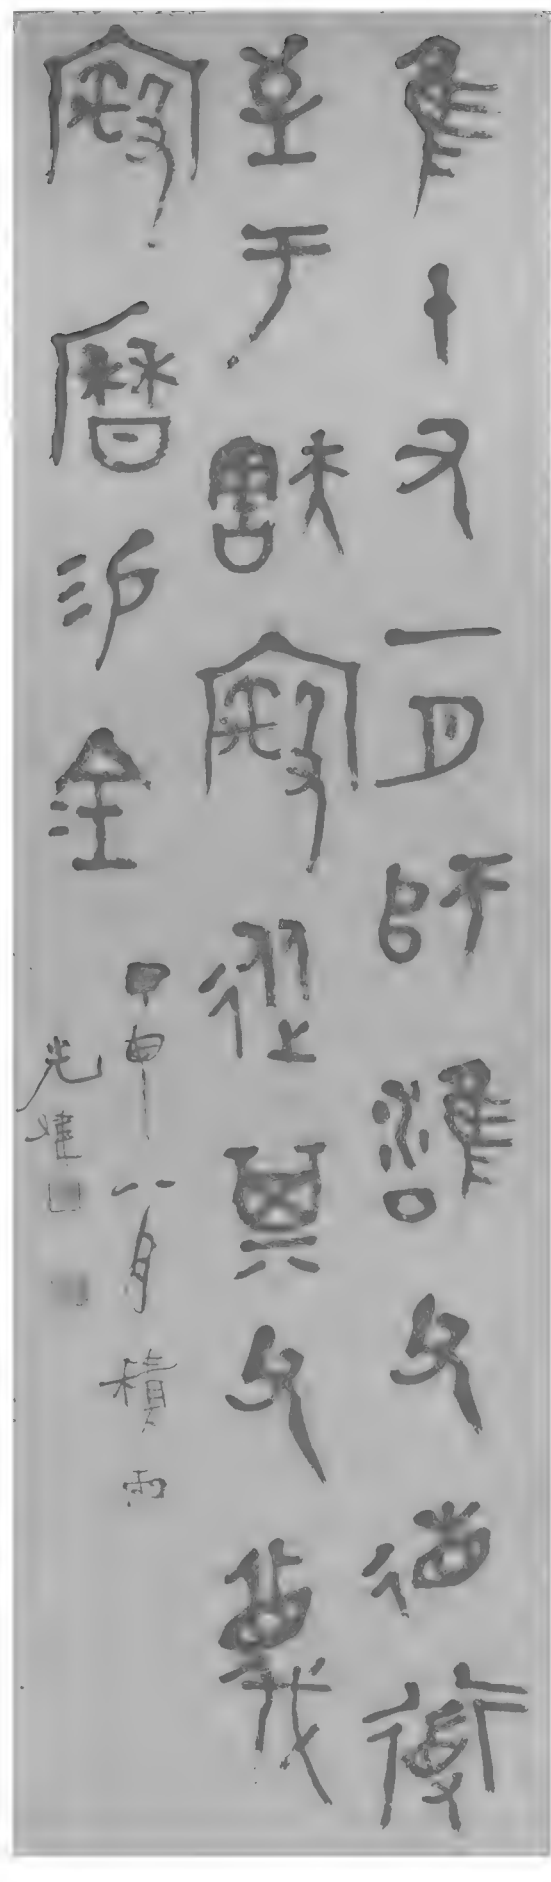 隹十又一月師雝父徣道
至于㝬從其父蔑
曆易金
甲申八月積雨
光